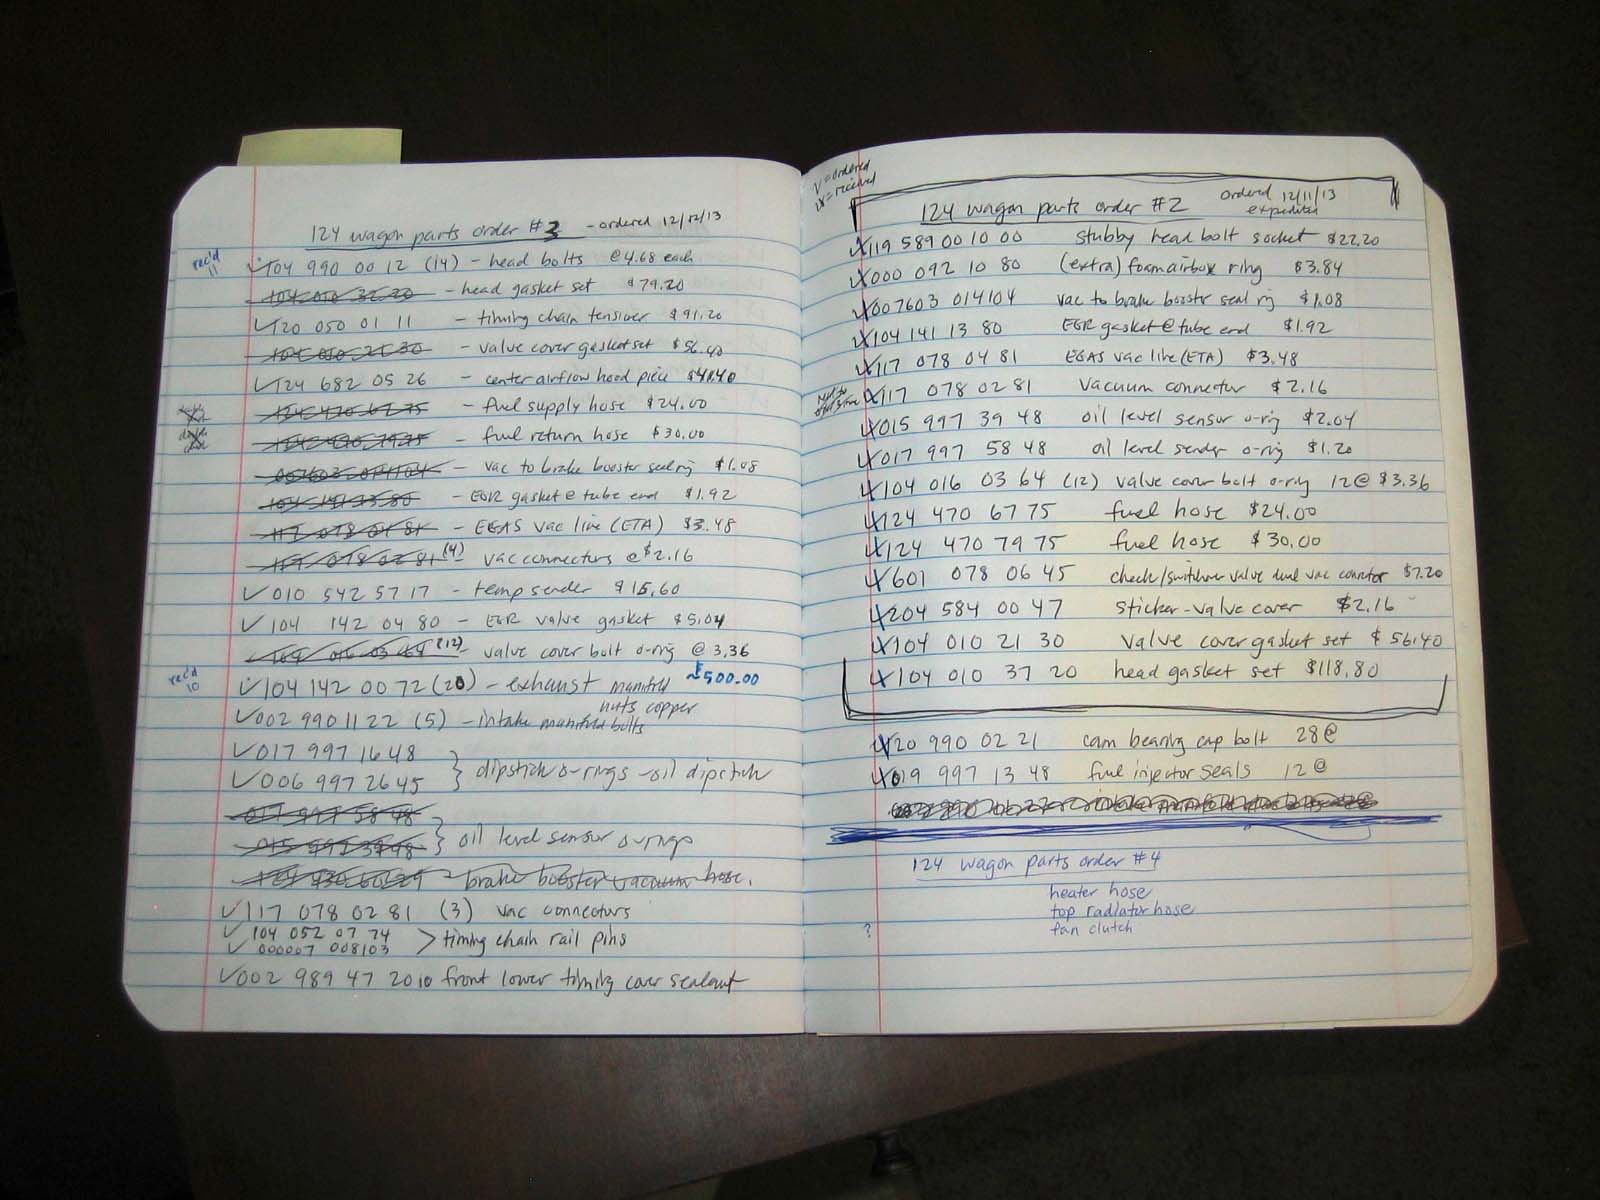 124 wagon parts order #3 - ordered 12/12/13
rec'd 11
✓104 990 00 12 (14) - head bolts @4.68 each
104 010 37 20 - head gasket set $79.20
✓120 050 01 11 - timing chain tensioner $91.20
104 010 21 30 - valve cover gasket set $56.40
✓124 682 05 26 - center airflow hood piece $41.40
124 470 67 75 - fuel supply hose $24.00
124 470 79 75 - fuel return hose $30.00
007603 014104 - vac to brake booster seal ring $1.08
104 141 13 80 - EGR gasket @ tube end $1.92
117 078 04 81 - EGAS vac line (ETA) $3.48
117 078 02 81 (4) vac connectors @ $2.16
✓010 542 57 17 - temp sender $15.60
✓104 142 04 80 - EGR valve gasket $5.04
104 016 03 64 (12) - valve cover bolt o-ring @ 3.36
rec'd 10
✓104 142 00 72 (20) - exhaust manifold ~$500.00
nuts copper
✓002 990 11 22 (5) - intake manifold bolts
✓017 997 16 48
✓006 997 26 45 } dipstick o-rings - oil dipstick
017 997 58 48
015 997 39 48 } oil level sensor o-rings
124 430 60 29 - brake booster vacuum hose.
✓117 078 02 81 (3) vac connectors
✓104 052 07 74
✓000007 008103 > timing chain rail pins
✓002 989 47 20 10 front lower timing cover sealant
V = ordered
X = received
124 wagon parts order #2 ordered 12/11/13
expedited
X119 589 00 10 00 stubby head bolt socket $22.20
X000 092 10 80 (extra) foam airbox ring $3.84
X007603 014104 vac to brake booster seal ring $1.08
X104 141 13 80 EGR gasket @ tube end $1.92
X117 078 04 81 EGAS vac line (ETA) $3.48
X117 078 02 81 vacuum connector $2.16
X015 997 39 48 oil level sensor o-ring $2.04
X017 997 58 48 oil level sender o-ring $1.20
X104 016 03 64 (12) valve cover bolt o-ring 12@ $3.36
X124 470 67 75 fuel hose $24.00
X124 470 79 75 fuel hose $30.00
X601 078 06 45 check/switchover valve dual vac connector $7.20
X204 584 00 47 sticker - valve cover $2.16
X104 010 21 30 valve cover gasket set $56.40
X104 010 37 20 head gasket set $118.80
X120 990 02 21 cam bearing cap bolt 28@
X019 997 13 48 fuel injector seals 12@
124 wagon parts order #4
heater hose
top radiator hose
? fan clutch